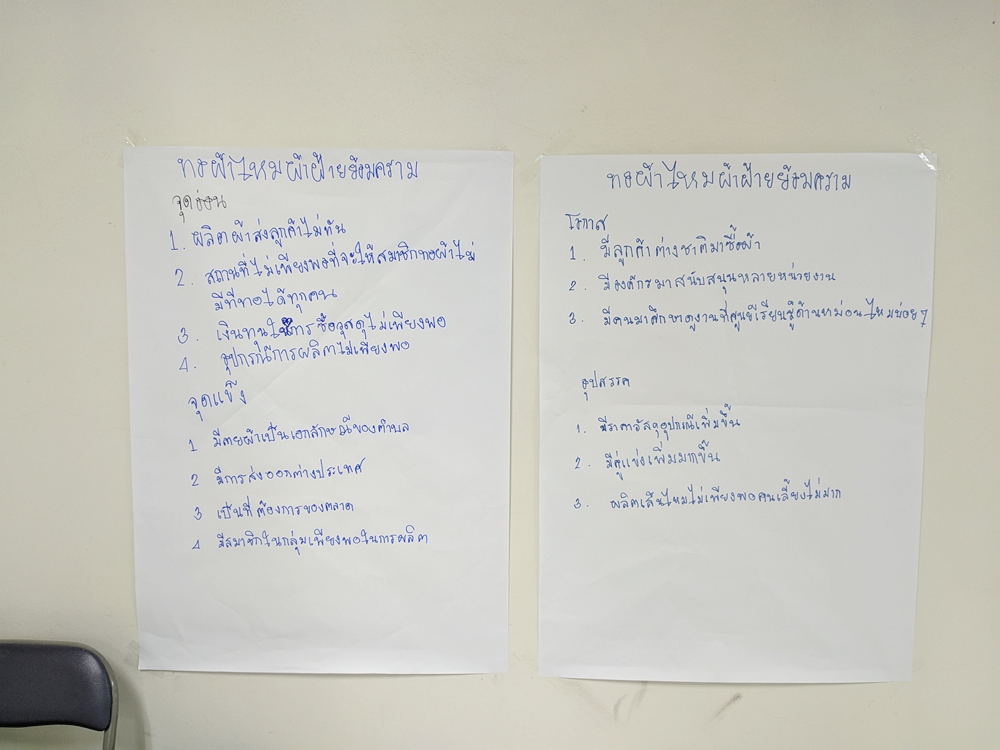 ทอผ้าไหมผ้าฝ้ายย้อมคราม
จุดอ่อน
1. ผลิตผ้าส่งลูกค้าไม่ทัน
2. สถานที่ไม่เพียงพอที่จะให้สมาชิกทอผ้าไม่
มีที่ทอได้ทุกคน
3. เงินทุนในการซื้อวุสดุไม่เพียงพอ
4. อุปกรณ์การผลิตไม่เพียงพอ
จุดแข็ง
1 มีลายผ้าเป็นเอกลักษณ์ของตำบล
2 มีการส่งออกต่างประเทศ
3 เป็นที่ต้องการของตลาด
4 มีสมาชิกในกลุ่มเพียงพอในการผลิต
ทอผ้าไหมผ้าฝ้ายย้อมคราม
โอกาส
1. มีลูกค้าต่างชาติมาซื้อผ้า
2. มีองค์กรมาสนับสนุนหลายหน่วยงาน
3. มีคนมาศึกษาดูงานที่ศูนย์เรียนรู้ด้านหม่อนไหมบ่อยๆ
อุปสรรค
1. มีราคาวัสดุอุปกรณ์เพิ่มขึ้น
2. มีคู่แข่งเพิ่มมากขึ้น
3. ผลิตเส้นไหมไม่เพียงพอคนเลี้ยงไม่มาก